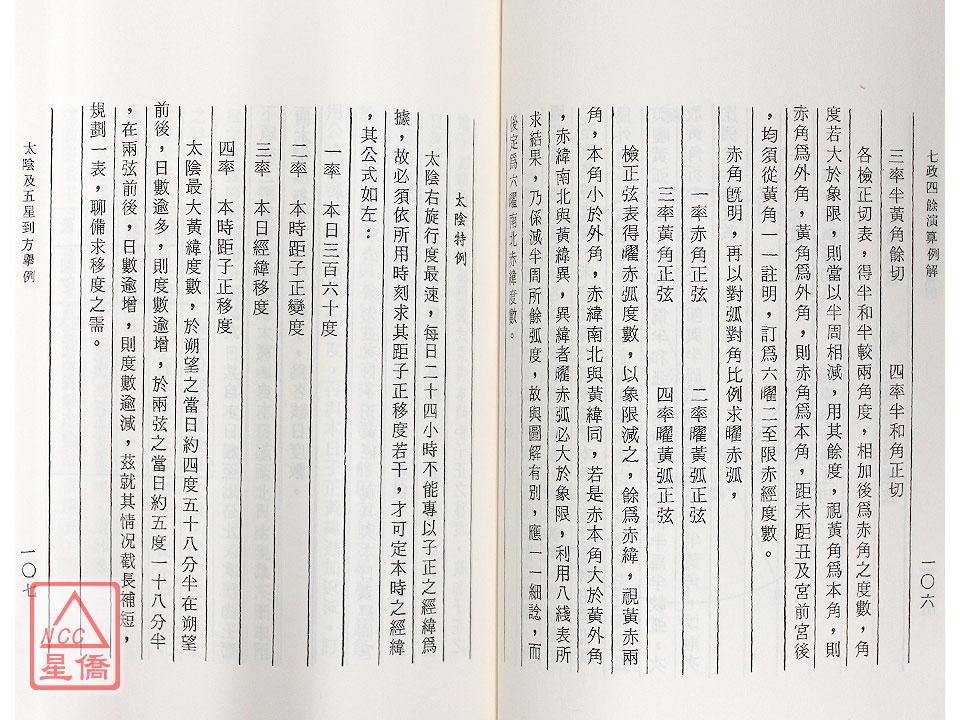 七政四餘演算例解
一〇六
三率半黃角餘切　四率半和角正切
各檢正切表，得半和半較兩角度，相加後爲赤角之度數，角
度若大於象限，則當以半周相減，用其餘度，視黃角爲本角，則
赤角爲外角，黃角爲外角，則赤角爲本角，距未距丑及宮前宮後
，均須從黃角一一註明，訂爲六曜二至限赤經度數。
赤角旣明，再以對弧對角比例求曜赤弧，
一率赤角正弦　二率曜黃弧正弦
三率黃角正弦　四率曜黃弧正弦
檢正弦表得曜赤弧度數，以象限減之，餘爲赤緯，視黃赤兩
角，本角小於外角，赤緯南北與黃緯同，若是赤本角大於黃外角
，赤緯南北與黃緯異，異緯者曜赤弧必大於象限，利用八綫表所
求結果，乃係減半周所餘弧度，故與圖解有別，應一一細諗，而
後定爲六曜南北赤緯度數。
太陰特例
太陰右旋行度最速，每日二十四小時不能專以子正之經緯爲
據，故必須依所用時刻求其距子正移度若干，才可定本時之經緯
，其公式如左：
一率　本日三百六十度
二率　本時距子正變度
三率　本日經緯移度
四率　本時距子正移度
太陰最大黃緯度數，於朔望之當日約四度五十八分半在朔望
前後，日數逾多，則度數逾增，於兩弦之當日約五度一十八分半
，在兩弦前後，日數逾增，則度數逾減，茲就其情況截長補短，
規劃一表，聊備求移度之需。
太陰及五星到方舉例
一〇七
NCC
星僑